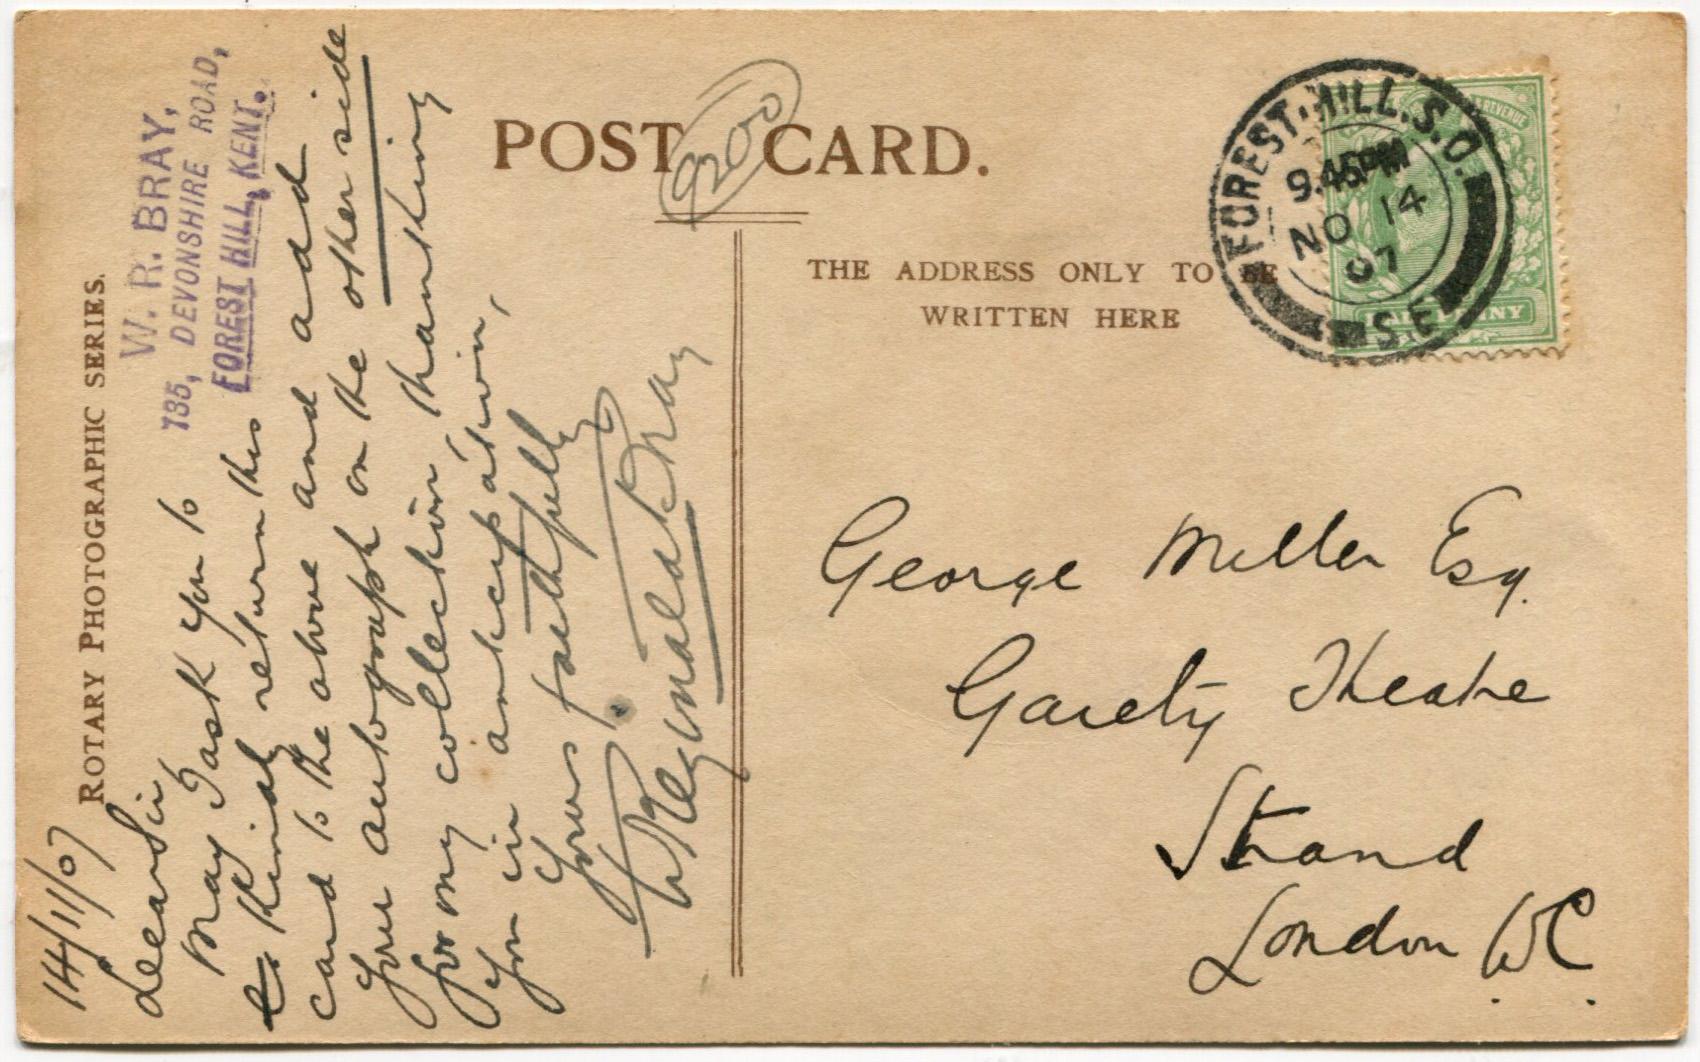 POST CARD.
9200
THE ADDRESS ONLY TO BE
WRITTEN HERE
ROTARY PHOTOGRAPHIC SERIES.
W. R. BRAY,
135, DEVONSHIRE ROAD,
FOREST HILL, KENT.
14/11/07
Dear Sir,
May I ask you to
kindly return this
card to the above and add
your autograph on the other side
for my collection, thanking
you in anticipation,
Yours faithfully
W Reginald Bray
FOREST.HILL.S.O.
9.45PM
NO 14
07
S.E
REVENUE
George Miller Esq.
Gaiety Theatre
Strand
London W.C.